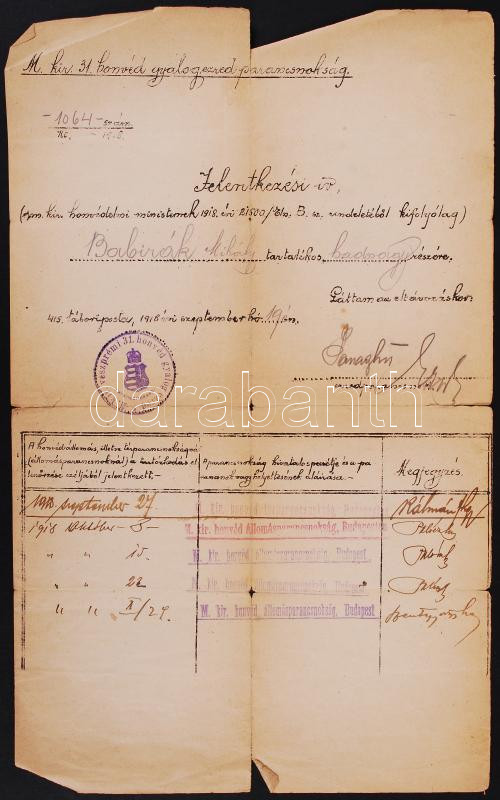 M. kir. 31. honvéd gyalogezredparancsnokság.
-1064- szám.
1918.
Jelentkezési ív,
(a m. kir. honvédelmi miniszternek 1918. évi 21500/Eln. B. sz. rendeletéből kifolyólag)
Babirák Mihály tartalékos hadnagy részére.
Láttam az eltávozáskor.
415. tábori posta, 1918 évi szeptember hó 19-én.
veszprémi 31. honvéd gyalog
darabanth
A honvédállomás, illetve térparancsnokságná
(állomásparancsnoknál) a tartózkodás el
lenőrzése céljából jelentkezett:-
A parancsnokság hivatalos pecsétje és a pa
rancsnok vagy helyettesének aláírása.-
Megjegyzés
1918 september 27 Kálmán
1918 Október 5- M. kir. honvéd állomásparancsnokság, Budapest
" " 10. M. kir. honvéd állomásparancsnokság, Budapest.
" " 22 M. kir. honvéd állomásparancsnokság, Budapest
" " X/29. M. kir. honvéd állomásparancsnokság, Budapest